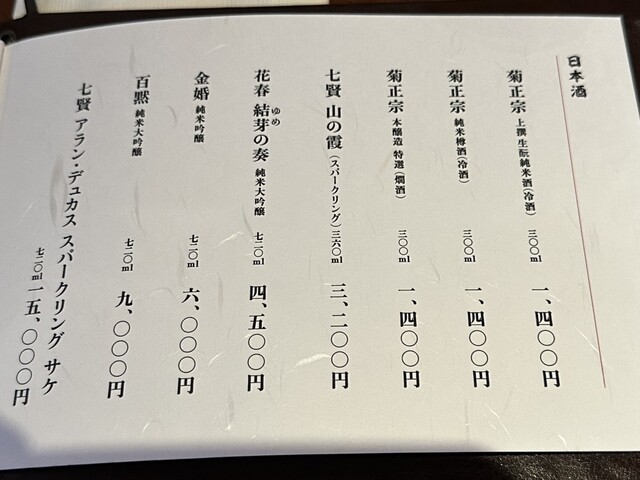 日本酒
菊正宗 上撰 生酛純米酒(冷酒) 三〇〇ml 一、四〇〇円
菊正宗 純米樽酒(冷酒) 三〇〇ml 一、四〇〇円
菊正宗 本醸造 特選(燗酒) 三〇〇ml 一、四〇〇円
七賢 山の霞(スパークリング)三六〇ml 三、二〇〇円
花春 結芽の奏 純米大吟醸 七二〇ml 四、五〇〇円
ゆめ
金婚 純米吟醸 七二〇ml 六、〇〇〇円
百黙 純米大吟醸 七二〇ml 九、〇〇〇円
七賢 アラン・デュカス スパークリング サケ
七二〇ml 一五、〇〇〇円